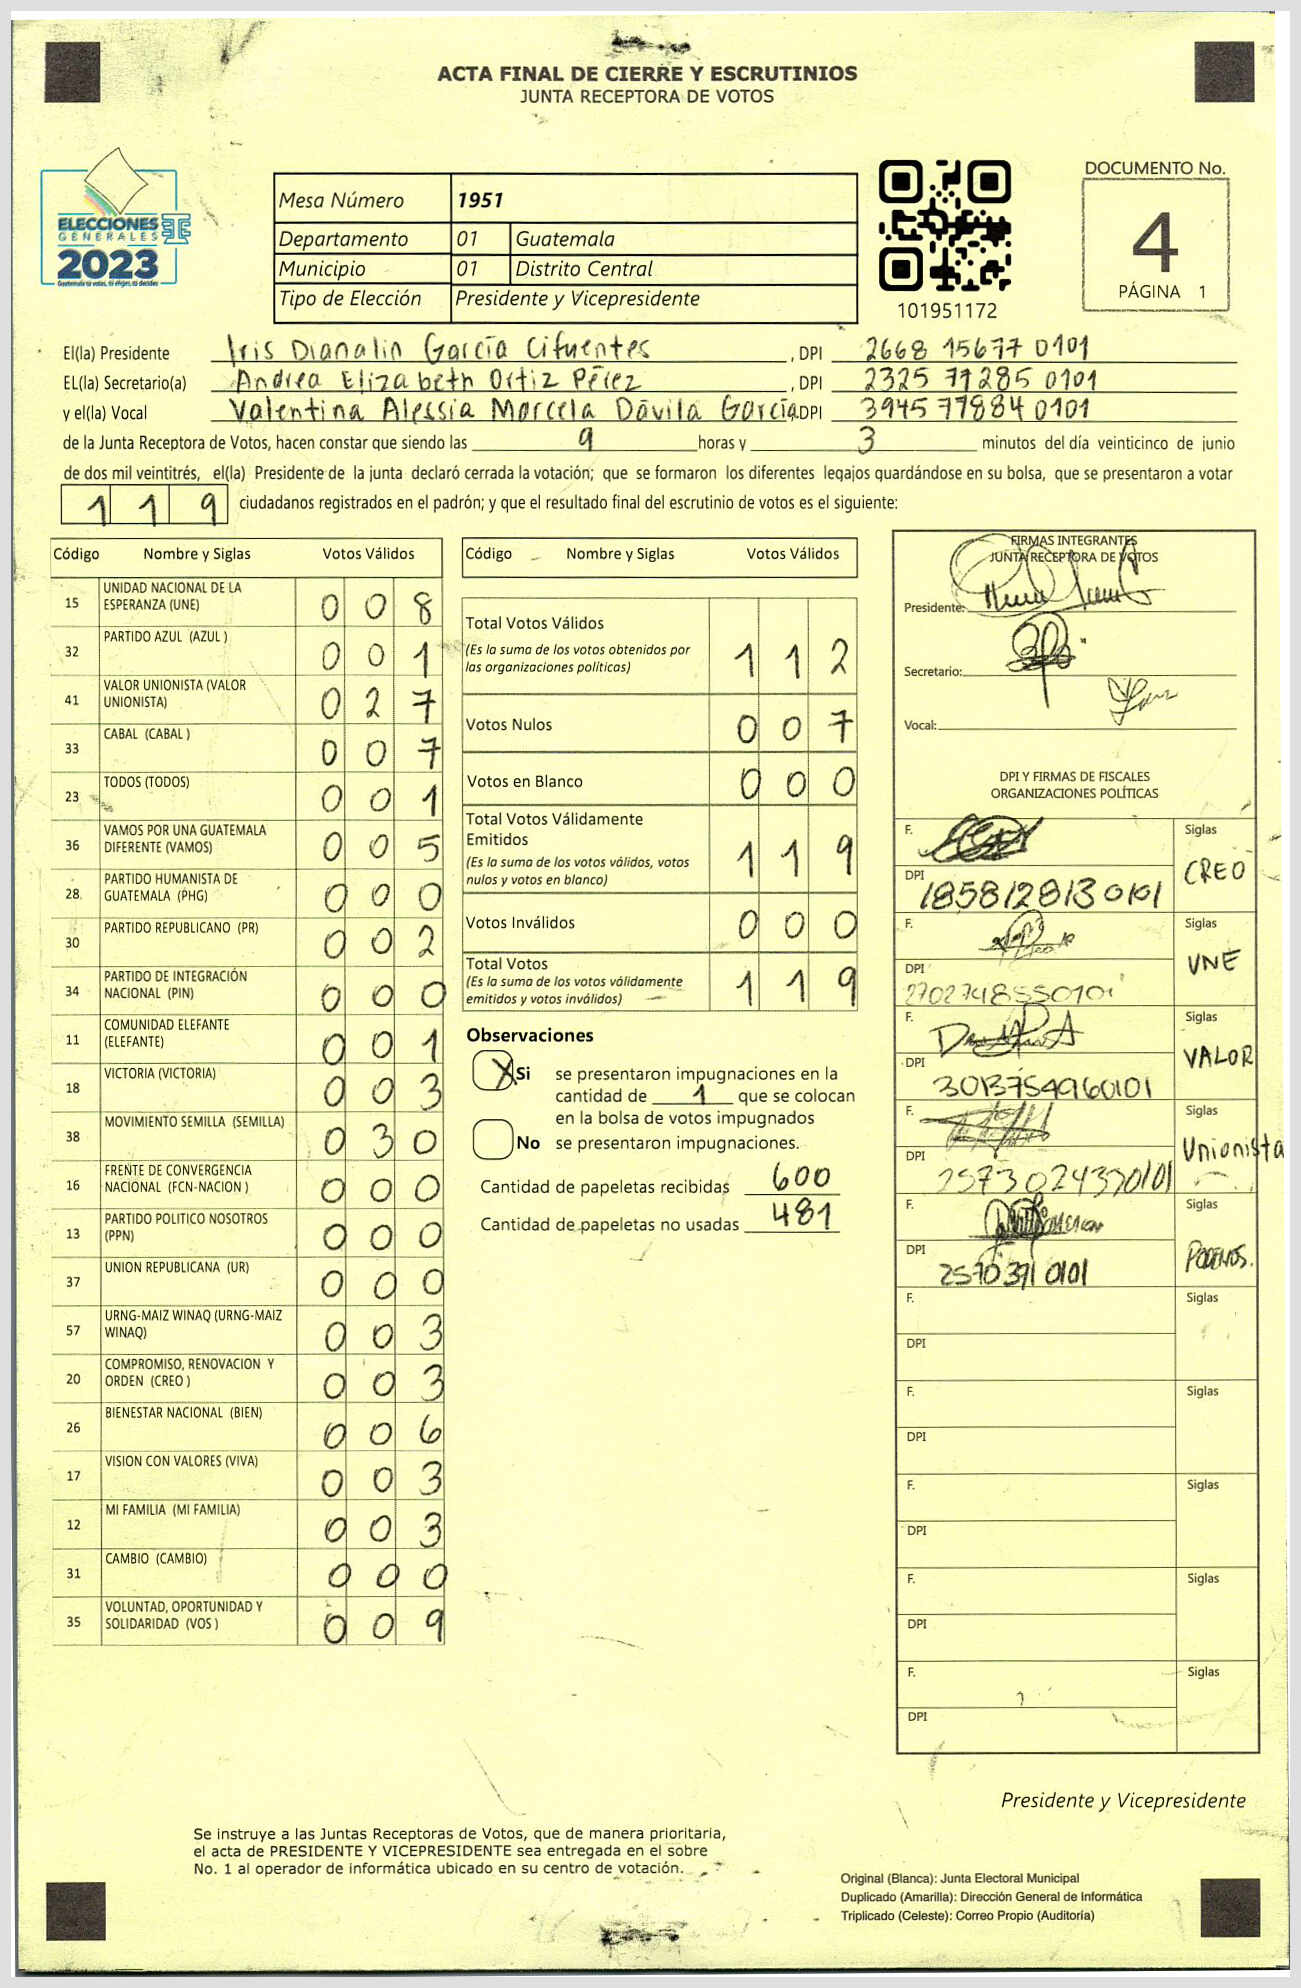 ACTA FINAL DE CIERRE Y ESCRUTINIOS
JUNTA RECEPTORA DE VOTOS
ELECCIONES
GENERALES
2023
Mesa Número 1951
Departamento 01 Guatemala
Municipio 01 Distrito Central
Tipo de Elección Presidente y Vicepresidente
101951172
DOCUMENTO No.
4
PÁGINA 1
El(la) Presidente Iris Dianalin García Cifuentes , DPI 2668 15677 0101
EL(la) Secretario(a) Andrea Elizabeth Ortiz Pérez , DPI 2325 71285 0101
y el(la) Vocal Valentina Alessia Marcela Dávila García, DPI 3945 77884 0101
de la Junta Receptora de Votos, hacen constar que siendo las 9 horas y 3 minutos del día veinticinco de junio
de dos mil veintitrés, el(la) Presidente de la junta declaró cerrada la votación; que se formaron los diferentes legajos guardándose en su bolsa, que se presentaron a votar
1 1 9 ciudadanos registrados en el padrón; y que el resultado final del escrutinio de votos es el siguiente:
Código Nombre y Siglas Votos Válidos
15 UNIDAD NACIONAL DE LA
ESPERANZA (UNE) 0 0 8
32 PARTIDO AZUL (AZUL ) 0 0 1
41 VALOR UNIONISTA (VALOR
UNIONISTA) 0 2 7
33 CABAL (CABAL ) 0 0 7
23 TODOS (TODOS) 0 0 1
36 VAMOS POR UNA GUATEMALA
DIFERENTE (VAMOS) 0 0 5
28 PARTIDO HUMANISTA DE
GUATEMALA (PHG) 0 0 0
30 PARTIDO REPUBLICANO (PR) 0 0 2
34 PARTIDO DE INTEGRACIÓN
NACIONAL (PIN) 0 0 0
11 COMUNIDAD ELEFANTE
(ELEFANTE) 0 0 1
18 VICTORIA (VICTORIA) 0 0 3
38 MOVIMIENTO SEMILLA (SEMILLA) 0 3 0
16 FRENTE DE CONVERGENCIA
NACIONAL (FCN-NACION ) 0 0 0
13 PARTIDO POLITICO NOSOTROS
(PPN) 0 0 0
37 UNION REPUBLICANA (UR) 0 0 0
57 URNG-MAIZ WINAQ (URNG-MAIZ
WINAQ) 0 0 3
20 COMPROMISO, RENOVACION Y
ORDEN (CREO ) 0 0 3
26 BIENESTAR NACIONAL (BIEN) 0 0 6
17 VISION CON VALORES (VIVA) 0 0 3
12 MI FAMILIA (MI FAMILIA) 0 0 3
31 CAMBIO (CAMBIO) 0 0 0
35 VOLUNTAD, OPORTUNIDAD Y
SOLIDARIDAD (VOS ) 0 0 9
Código Nombre y Siglas Votos Válidos
Total Votos Válidos
(Es la suma de los votos obtenidos por
las organizaciones políticas) 1 1 2
Votos Nulos 0 0 7
Votos en Blanco 0 0 0
Total Votos Válidamente
Emitidos
(Es la suma de los votos válidos, votos
nulos y votos en blanco) 1 1 9
Votos Inválidos 0 0 0
Total Votos
(Es la suma de los votos válidamente
emitidos y votos inválidos) 1 1 9
Observaciones
X Si se presentaron impugnaciones en la
cantidad de 1 que se colocan
en la bolsa de votos impugnados
No se presentaron impugnaciones.
Cantidad de papeletas recibidas 600
Cantidad de papeletas no usadas 481
FIRMAS INTEGRANTES
JUNTA RECEPTORA DE VOTOS
Presidente:
Secretario:
Vocal:
DPI Y FIRMAS DE FISCALES
ORGANIZACIONES POLÍTICAS
F. Siglas
CREO
DPI 1858128130101
F. Siglas
UNE
DPI 2702748550101
F. Siglas
VALOR
DPI 3013754960101
F. Siglas
Unionista
DPI 2573024370101
F. Siglas
PODEMOS.
DPI 2570371 0101
F. Siglas
DPI
F. Siglas
DPI
F. Siglas
DPI
F. Siglas
DPI
F. Siglas
DPI
Presidente y Vicepresidente
Se instruye a las Juntas Receptoras de Votos, que de manera prioritaria,
el acta de PRESIDENTE Y VICEPRESIDENTE sea entregada en el sobre
No. 1 al operador de informática ubicado en su centro de votación.
Original (Blanca): Junta Electoral Municipal
Duplicado (Amarilla): Dirección General de Informática
Triplicado (Celeste): Correo Propio (Auditoría)